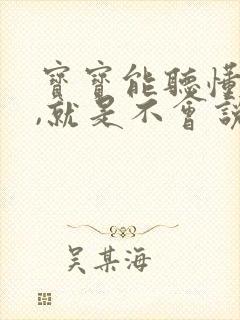 寶寶能聽懂
,就是不會說
吴某海